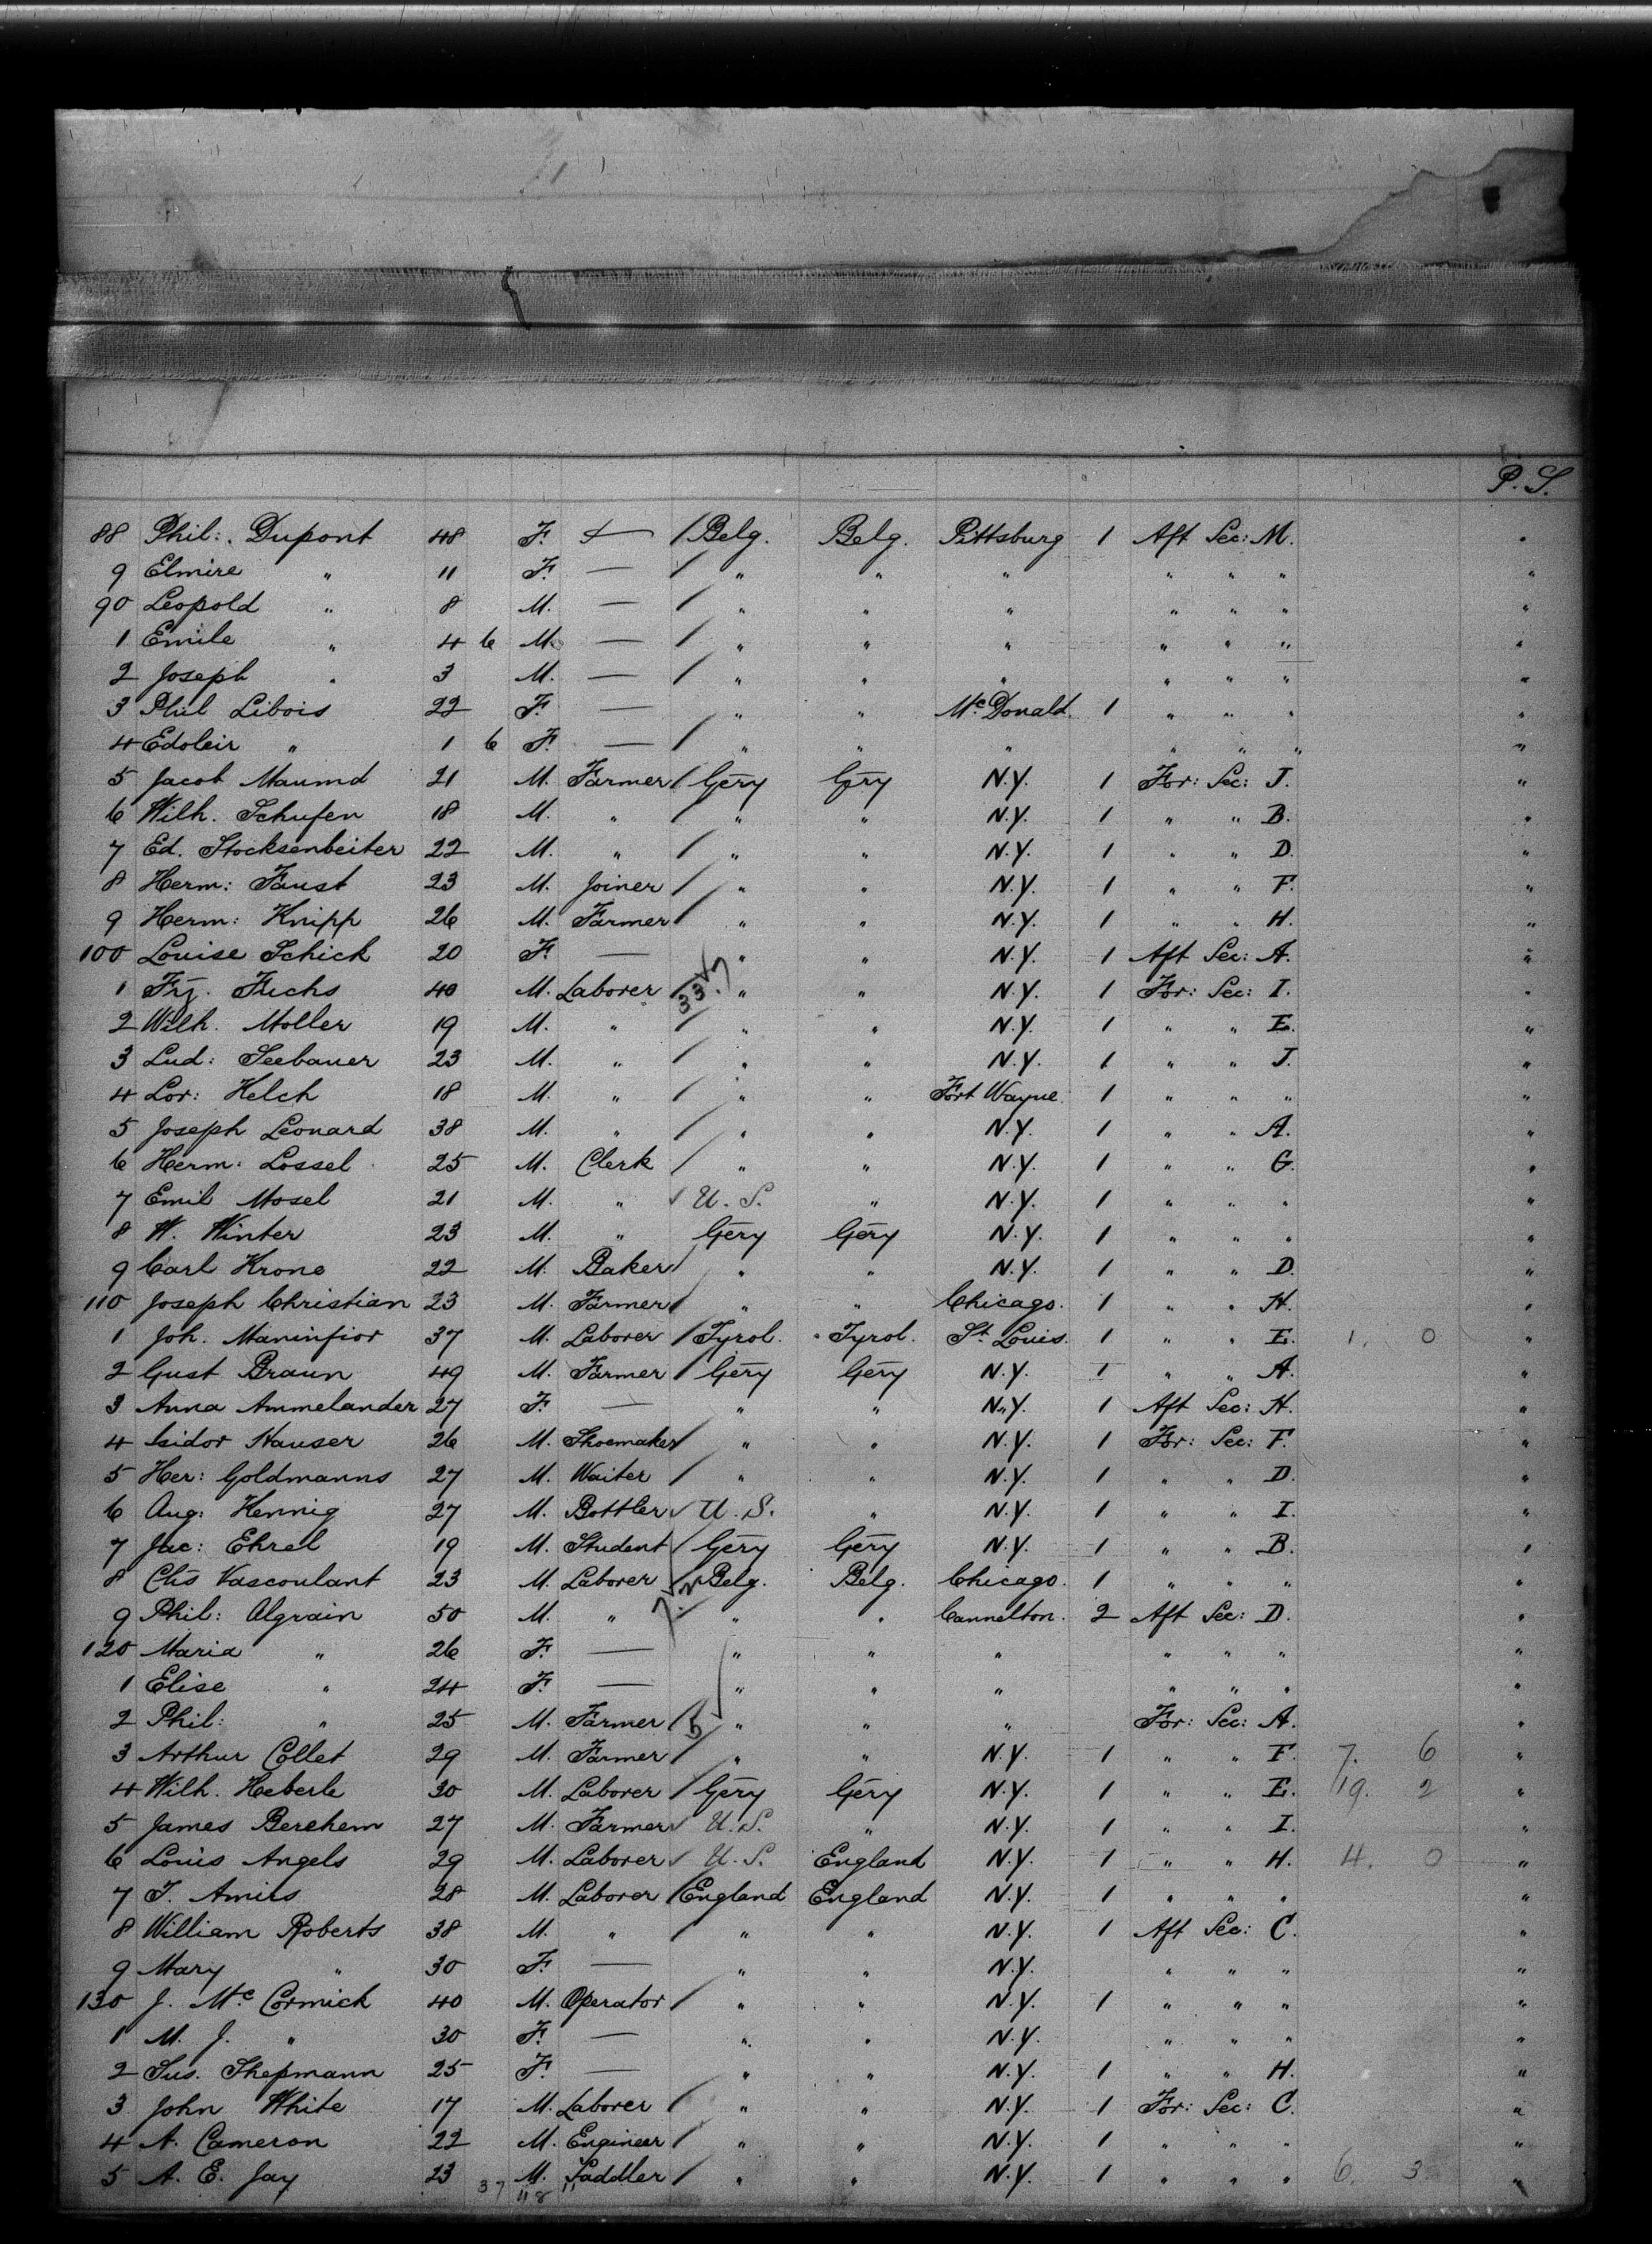 P. S.
88 Phil: Dupont 48 F. — Belg. Belg. Pittsburg 1 Aft Sec: M. "
9 Elmire " 11 F. — " " " " " " "
90 Leopold " 8 M. — " " " " " " "
1 Emile " 4 6 M. — " " " " " " "
2 Joseph " 3 M. — " " " " " " "
3 Phil Libois 22 F. — " " Mc Donald. 1 " " " "
4 Edoleir " 1 6 F. — " " " " " " "
5 Jacob Maumd 21 M. Farmer Gery Gery N.Y. 1 For: Sec: J. "
6 Wilh. Schufen 18 M. " " " N.Y. 1 " " B. "
7 Ed. Stocksenbeiter 22 M. " " " N.Y. 1 " " D. "
8 Herm: Faust 23 M. Joiner " " N.Y. 1 " " F. "
9 Herm: Knipp 26 M. Farmer " " N.Y. 1 " " H. "
100 Louise Schick 20 F. — " " N.Y. 1 Aft Sec: A. "
1 Frz. Fuchs 40 M. Laborer " " N.Y. 1 For: Sec: I. "
2 Wilh. Moller 19 M. " " " N.Y. 1 " " E. "
3 Lud: Seebauer 23 M. " " " N.Y. 1 " " J. "
4 Lor: Helch 18 M. " " " Fort Wayne. 1 " " " "
5 Joseph Leonard 38 M. " " " N.Y. 1 " " A. "
6 Herm: Lossel 25 M. Clerk " " N.Y. 1 " " G. "
7 Emil Mosel 21 M. " U.S. " N.Y. 1 " " " "
8 W. Winter 23 M. " Gery Gery N.Y. 1 " " " "
9 Carl Krone 22 M. Baker " " N.Y. 1 " " D. "
110 Joseph Christian 23 M. Farmer " " Chicago. 1 " " H. "
1 Joh. Maninfior 37 M. Laborer Tyrol. Tyrol. St. Louis. 1 " " E. 1. 0 "
2 Gust Braun 49 M. Farmer Gery Gery N.Y. 1 " " A. "
3 Anna Ammelander 27 F. — " " N.Y. 1 Aft Sec: H. "
4 Isidor Hauser 26 M. Shoemaker " " N.Y. 1 For: Sec: F. "
5 Her: Goldmanns 27 M. Waiter " " N.Y. 1 " " D. "
6 Aug: Hennig 27 M. Bottler U.S. " N.Y. 1 " " I. "
7 Jac: Ehrel 19 M. Student Gery Gery N.Y. 1 " " B. "
8 Chs Vascoulant 23 M. Laborer Belg. Belg. Chicago. 1 " " " "
9 Phil: Algrain 50 M. " " " Cannelton. 2 Aft Sec: D. "
120 Maria " 26 F. — " " " " " " "
1 Elise " 24 F. — " " " " " " "
2 Phil: " 25 M. Farmer " " " For: Sec: A. "
3 Arthur Collet 29 M. Farmer " " N.Y. 1 " " F. 7. 6 "
4 Wilh. Heberle 30 M. Laborer Gery Gery N.Y. 1 " " E. 19. 2 "
5 James Berchem 27 M. Farmer U.S. " N.Y. 1 " " I. "
6 Louis Angels 29 M. Laborer U.S. England N.Y. 1 " " H. 4. 0 "
7 T. Amies 28 M. Laborer England England N.Y. 1 " " " "
8 William Roberts 38 M. " " " N.Y. 1 Aft Sec: C. "
9 Mary " 30 F. — " " N.Y. " " " "
130 J. Mc Cormick 40 M. Operator " " N.Y. 1 " " " "
1 M. J. " 30 F. — " " N.Y. " " " "
2 Sus. Shepmann 25 F. — " " N.Y. 1 " " H. "
3 John White 17 M. Laborer " " N.Y. 1 For: Sec: C. "
4 A. Cameron 22 M. Engineer " " N.Y. 1 " " " "
5 A. E. Jay 23 M. Saddler " " N.Y. 1 " " " 6. 3 "